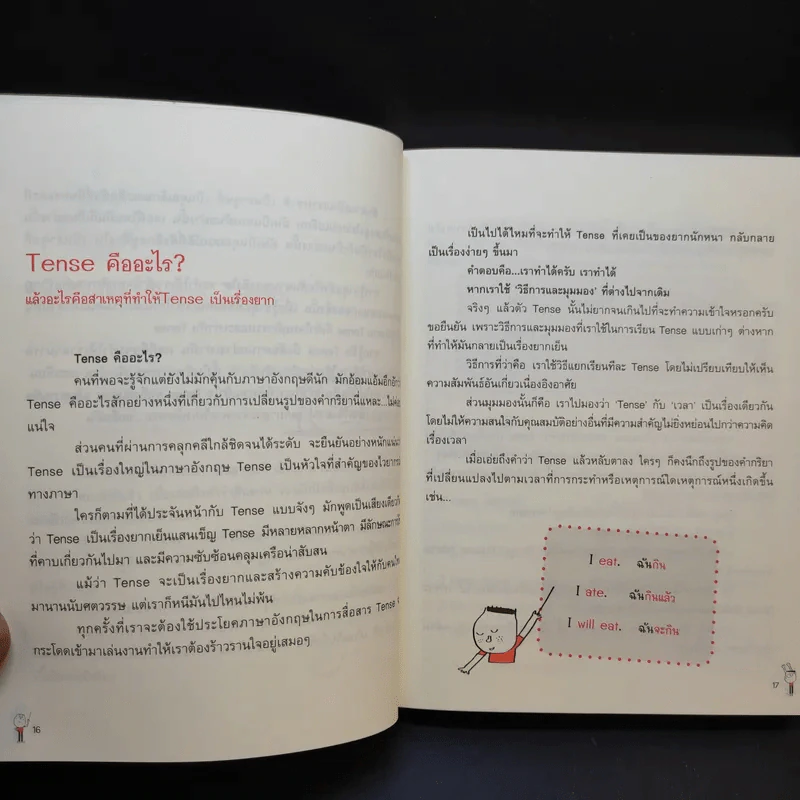 Tense คืออะไร?
แล้วอะไรคือสาเหตุที่ทำให้Tense เป็นเรื่องยาก
Tense คืออะไร?
คนที่พอจะรู้จักแต่ยังไม่มักคุ้นกับภาษาอังกฤษดีนัก มักอ้อมแอ้มอีกอ้าว
Tense คืออะไรสักอย่างหนึ่งที่เกี่ยวกับการเปลี่ยนรูปของคำกริยานี่แหละ...ไม่ค่อย
แน่ใจ
ส่วนคนที่ผ่านการคลุกคลีใกล้ชิดจนได้ระดับ จะยืนยันอย่างหนักแน่น
Tense เป็นเรื่องใหญ่ในภาษาอังกฤษ Tense เป็นหัวใจที่สำคัญของไวยากรณ์
ทางภาษา
ใครก็ตามที่ได้ประจันหน้ากับ Tense แบบจังๆ มักพูดเป็นเสียงเดียวกัน
ว่า Tense เป็นเรื่องยากเย็นแสนเข็ญ Tense มีหลายหลากหน้าตา มีลักษณะการใช้
ที่คาบเกี่ยวกันไปมา และมีความซับซ้อนคลุมเครือน่าสับสน
แม้ว่า Tense จะเป็นเรื่องยากและสร้างความคับข้องใจให้กับคนไทย
มานานนับศตวรรษ แต่เราก็หนีมันไปไหนไม่พ้น
ทุกครั้งที่เราจะต้องใช้ประโยคภาษาอังกฤษในการสื่อสาร Tense
กระโดดเข้ามาเล่นงานทำให้เราต้องร้าวรานใจอยู่เสมอๆ
16
เป็นไปได้ไหมที่จะทำให้ Tense ที่เคยเป็นของยากนักหนา กลับกลาย
เป็นเรื่องง่ายๆ ขึ้นมา
คำตอบคือ...เราทำได้ครับ เราทำได้
หากเราใช้ 'วิธีการและมุมมอง' ที่ต่างไปจากเดิม
จริงๆ แล้วตัว Tense นั้นไม่ยากจนเกินไปที่จะทำความเข้าใจหรอกครับ
ขอยืนยัน เพราะวิธีการและมุมมองที่เราใช้ในการเรียน Tense แบบเก่าๆ ต่างหาก
ที่ทำให้มันกลายเป็นเรื่องยากเย็น
วิธีการที่ว่าคือ เราใช้วิธีแยกเรียนทีละ Tense โดยไม่เปรียบเทียบให้เห็น
ความสัมพันธ์อันเกี่ยวเนื่องอิงอาศัย
ส่วนมุมมองนั้นก็คือ เราไปมองว่า 'Tense' กับ 'เวลา' เป็นเรื่องเดียวกัน
โดยไม่ให้ความสนใจกับคุณสมบัติอย่างอื่นที่มีความสำคัญไม่ยิ่งหย่อนไปกว่าความคิด
เรื่องเวลา
เมื่อเอ่ยถึงคำว่า Tense แล้วหลับตาลง ใครๆ ก็คงนึกถึงรูปของคำกริยา
ที่เปลี่ยนแปลงไปตามเวลาที่การกระทำหรือเหตุการณ์ใดเหตุการณ์หนึ่งเกิดขึ้น
เช่น...
I eat. ฉันกิน
I ate. ฉันกินแล้ว
I will eat. ฉันจะกิน
17